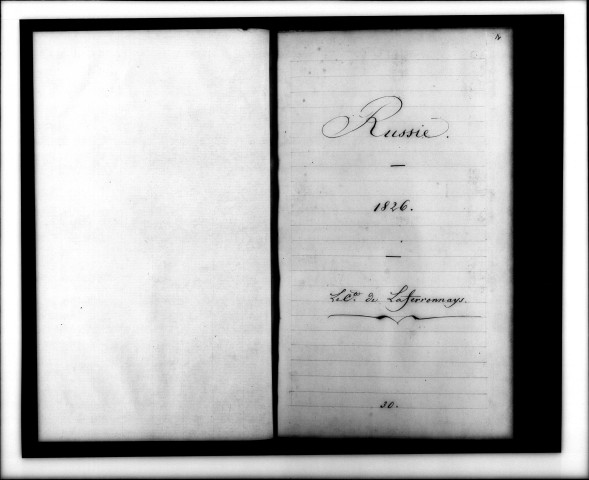 Russie.
1826.
Le Cte. de Laferronnays.
30.